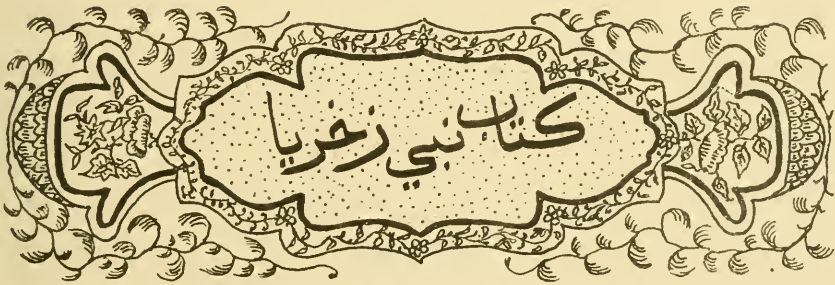 كتاب نبي زخريا